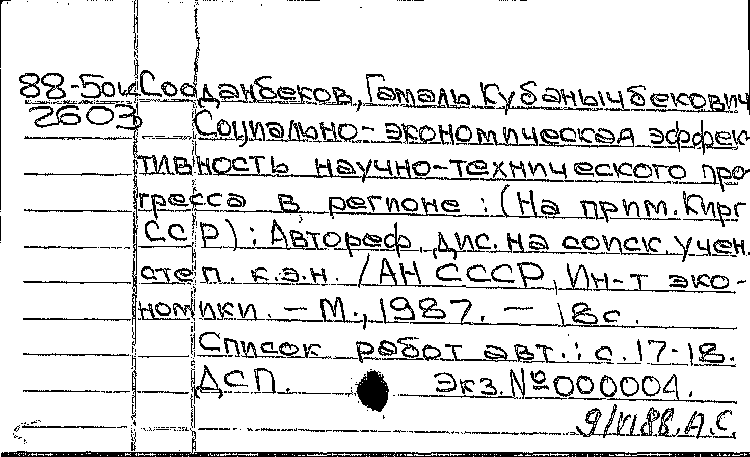 88-50к Сооданбеков, Гамаль Кубанычбекович
2603 Социально-экономическая эффек-
тивность научно-технического про-
гресса в регионе : (На прим. Кирг
ССР) : Автореф. дис. на соиск. учен.
степ. к.э.н. / АН СССР, Ин-т эко-
номики. – М., 1987. – 18с.
Список работ авт.: с. 17-18.
ДСП. Экз. №000004.
9/VI88. А.С.